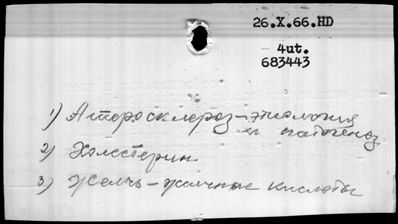 26.X.66.HD
4ut.
683443
1) Атеросклероз-этиология
и патогенез
2) Холестерин
3) Желчь-желчные кислоты